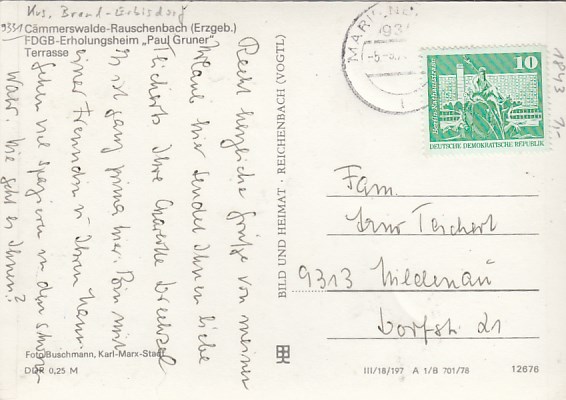 Krs. Brand-Erbisdorf
9331 Cämmerswalde-Rauschenbach (Erzgeb.)
FDGB-Erholungsheim „Paul Gruner"
Terrasse
Recht herzliche Grüße von meiner
hier sendet Ihnen liebe
Teicherts Ihre
Es ist ganz prima hier. Bin mit
einer Freundin u. Ihrem Mann
gehen viel spazieren in dem
Wald. Wie geht es Ihnen?
Foto Buschmann, Karl-Marx-Stadt
DDR 0,25 M
BILD UND HEIMAT · REICHENBACH (VOGTL)
MARI
93
-5.-
10
Berlin
DEUTSCHE DEMOKRATISCHE REPUBLIK
1843 1,-
Fam.
Teichert
9313 Mildenau
Dorfstr 21
III/18/197 A 1/B 701/78
12676